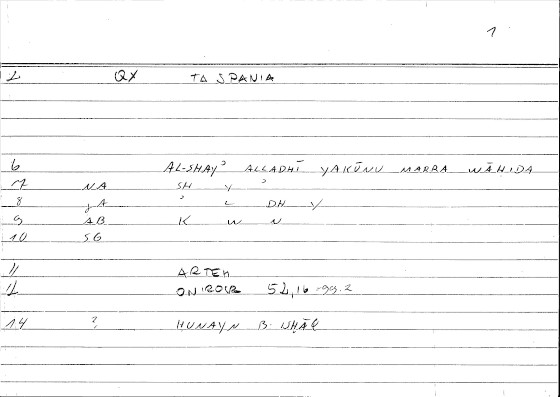 1
2 QX TA SPANIA
6 AL-SHAYʾ ALLADHĪ YAKŪNU MARRA WĀḤIDA
7 NA SH Y ʾ
8 JA ʾ L DH Y
9 AB K W N
10 SG
11 ARTEM
12 ONIROCR 52,16 -99.2
14 ? HUNAYN B. ISḤĀQ